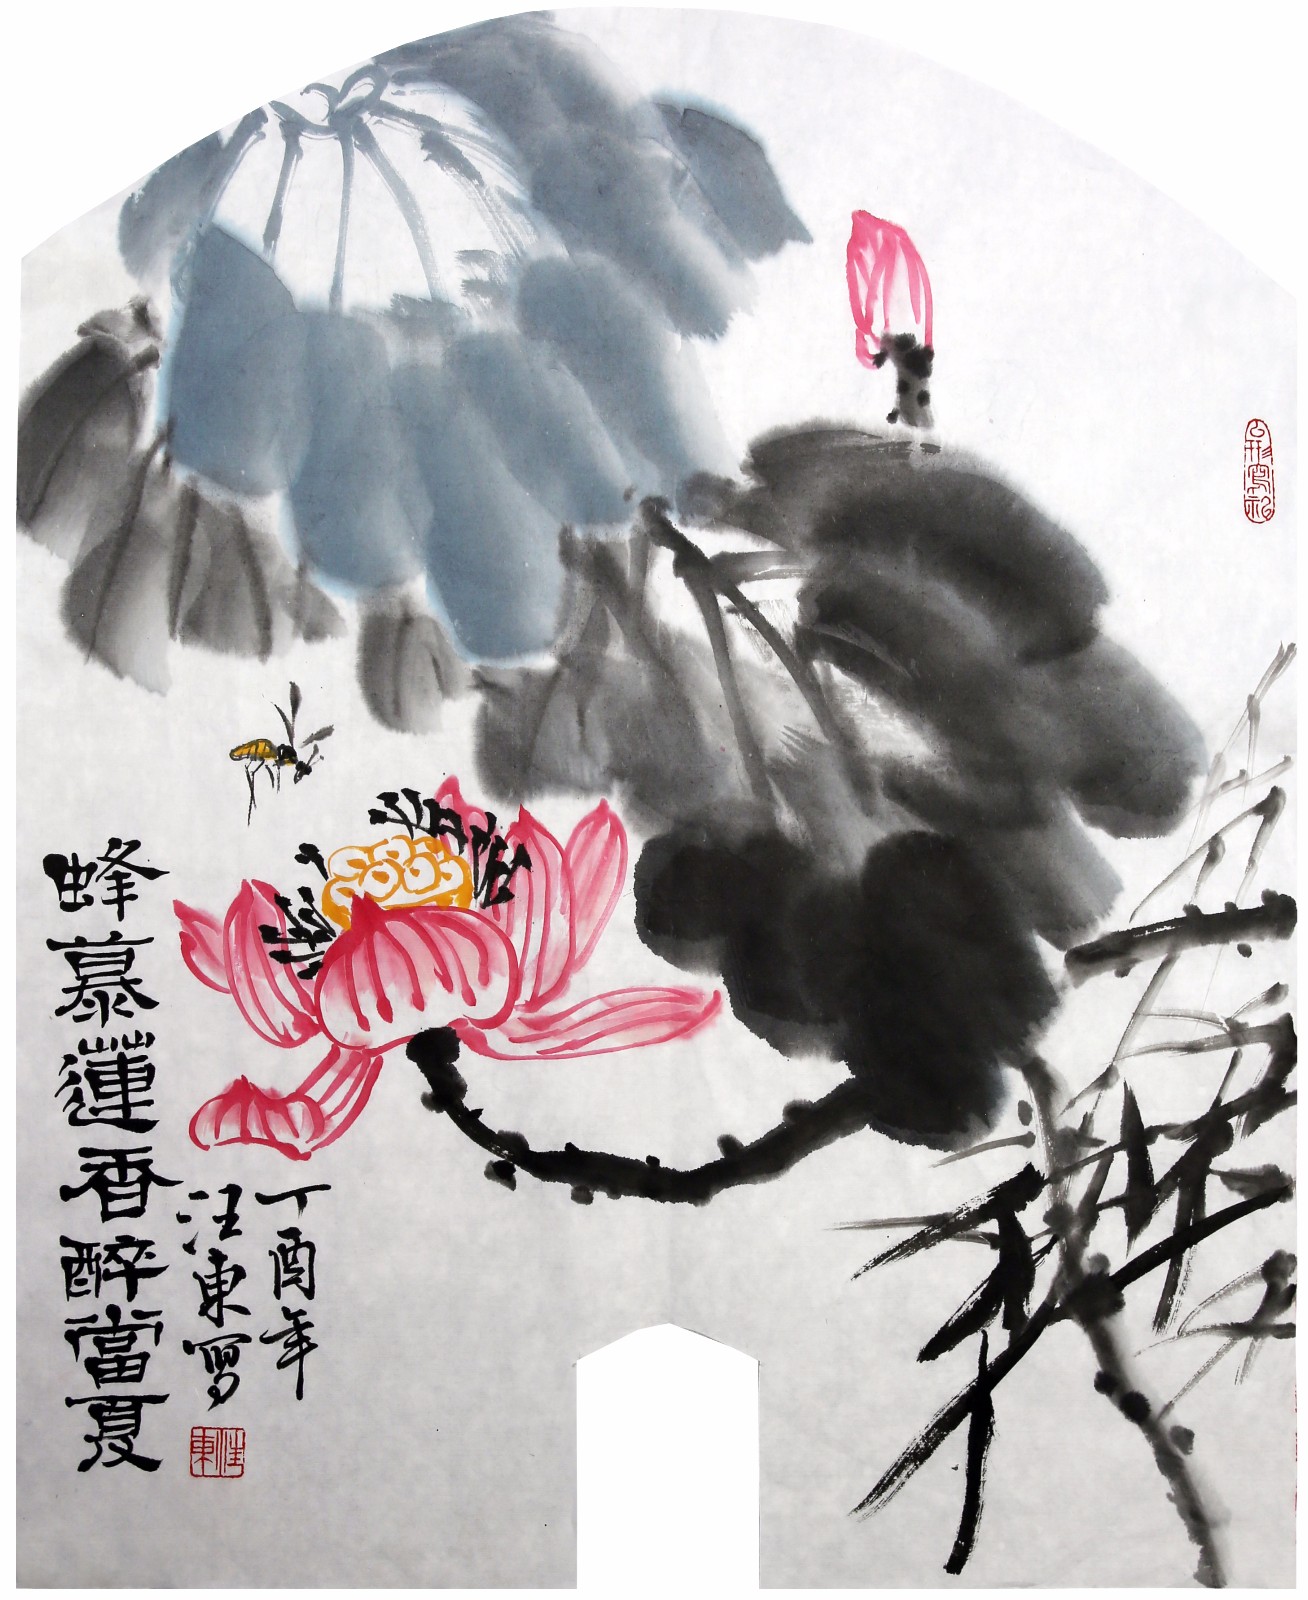 蜂慕蓮香醉當夏
丁酉年
汪東寫
汪東
以形寫神